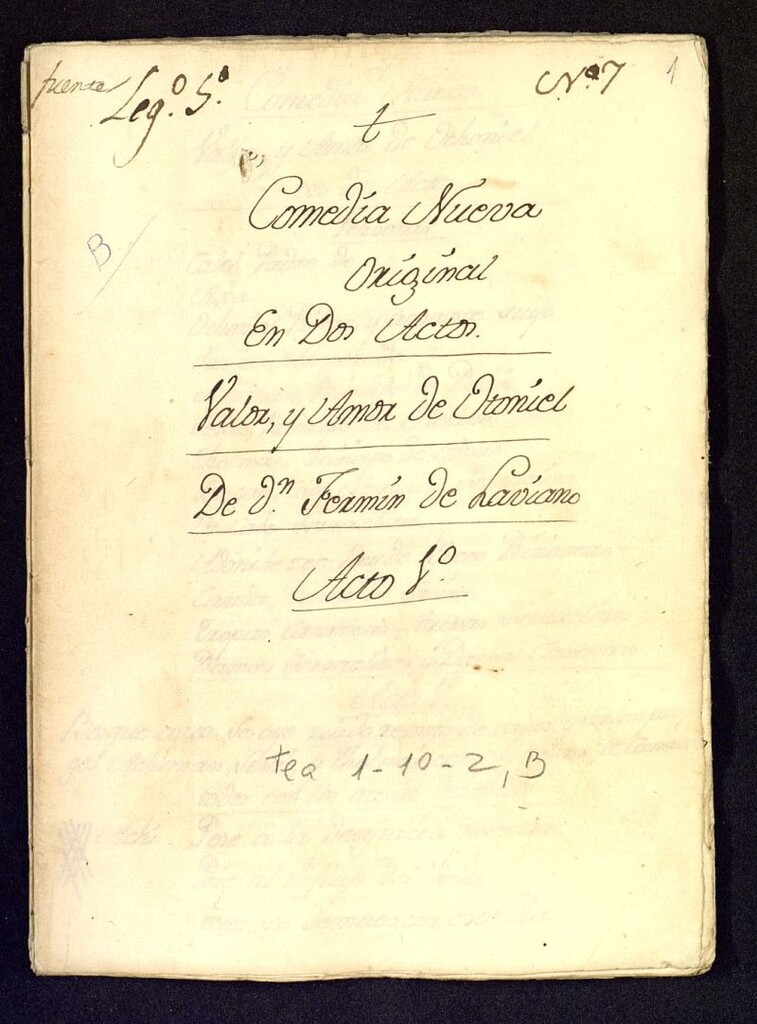 fuente
Leg.º 5.º
Nº 7
1
t
B
Comedia Nueva
Original
En Dos Actos.
Valor, y Amor de Otoniel
De D.ⁿ Fermin de Laviano
Acto 1.º
tea 1-10-2, B